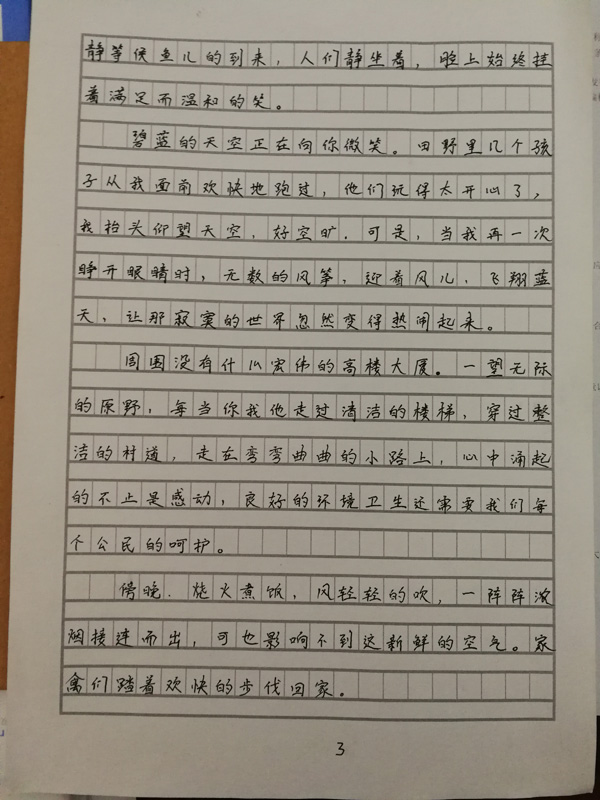 静等候鱼儿的到来，人们静坐着，脸上始终挂
着满足而温和的笑。
碧蓝的天空正在向你微笑。田野里几个孩
子从我面前欢快地跑过，他们玩得太开心了，
我抬头仰望天空，好空旷．可是，当我再一次
睁开眼睛时，无数的风筝，迎着风儿，飞翔蓝
天，让那寂寞的世界忽然变得热闹起来。
周围没有什么宏伟的高楼大厦。一望无际
的原野，每当你我他走过清洁的楼梯，穿过整
洁的村道，走在弯弯曲曲的小路上，心中涌起
的不止是感动，良好的环境卫生还需要我们每
个公民的呵护。
傍晚．烧火煮饭，风轻轻的吹，一阵阵浓
烟接连而出，可也影响不到这新鲜的空气。家
禽们踏着欢快的步伐回家。
3